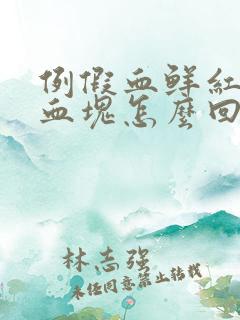 例假血鲜红
血塊怎麼回
林志强
未经同意禁止转载